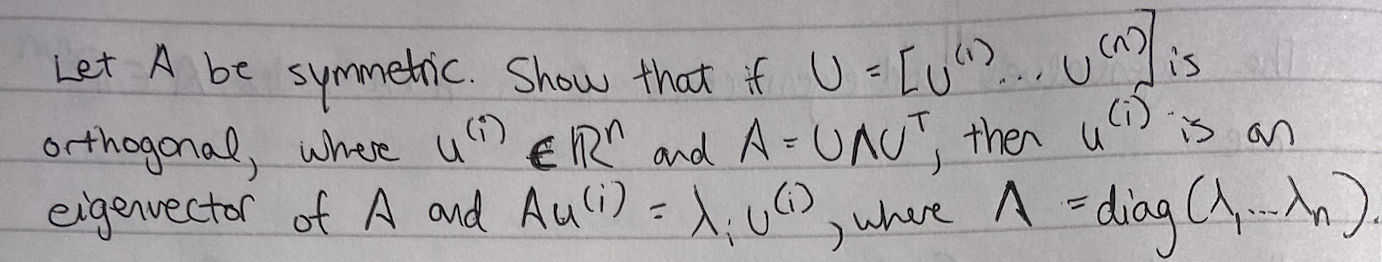 Let A be symmetric. Show that if U = [u⁽ⁱ⁾... u⁽ⁿ⁾] is
orthogonal, where u⁽ⁱ⁾ ∈ ℝⁿ and A = UΛUᵀ, then u⁽ⁱ⁾ is an
eigenvector of A and Au⁽ⁱ⁾ = λᵢu⁽ⁱ⁾, where Λ = diag(λ₁...λₙ).